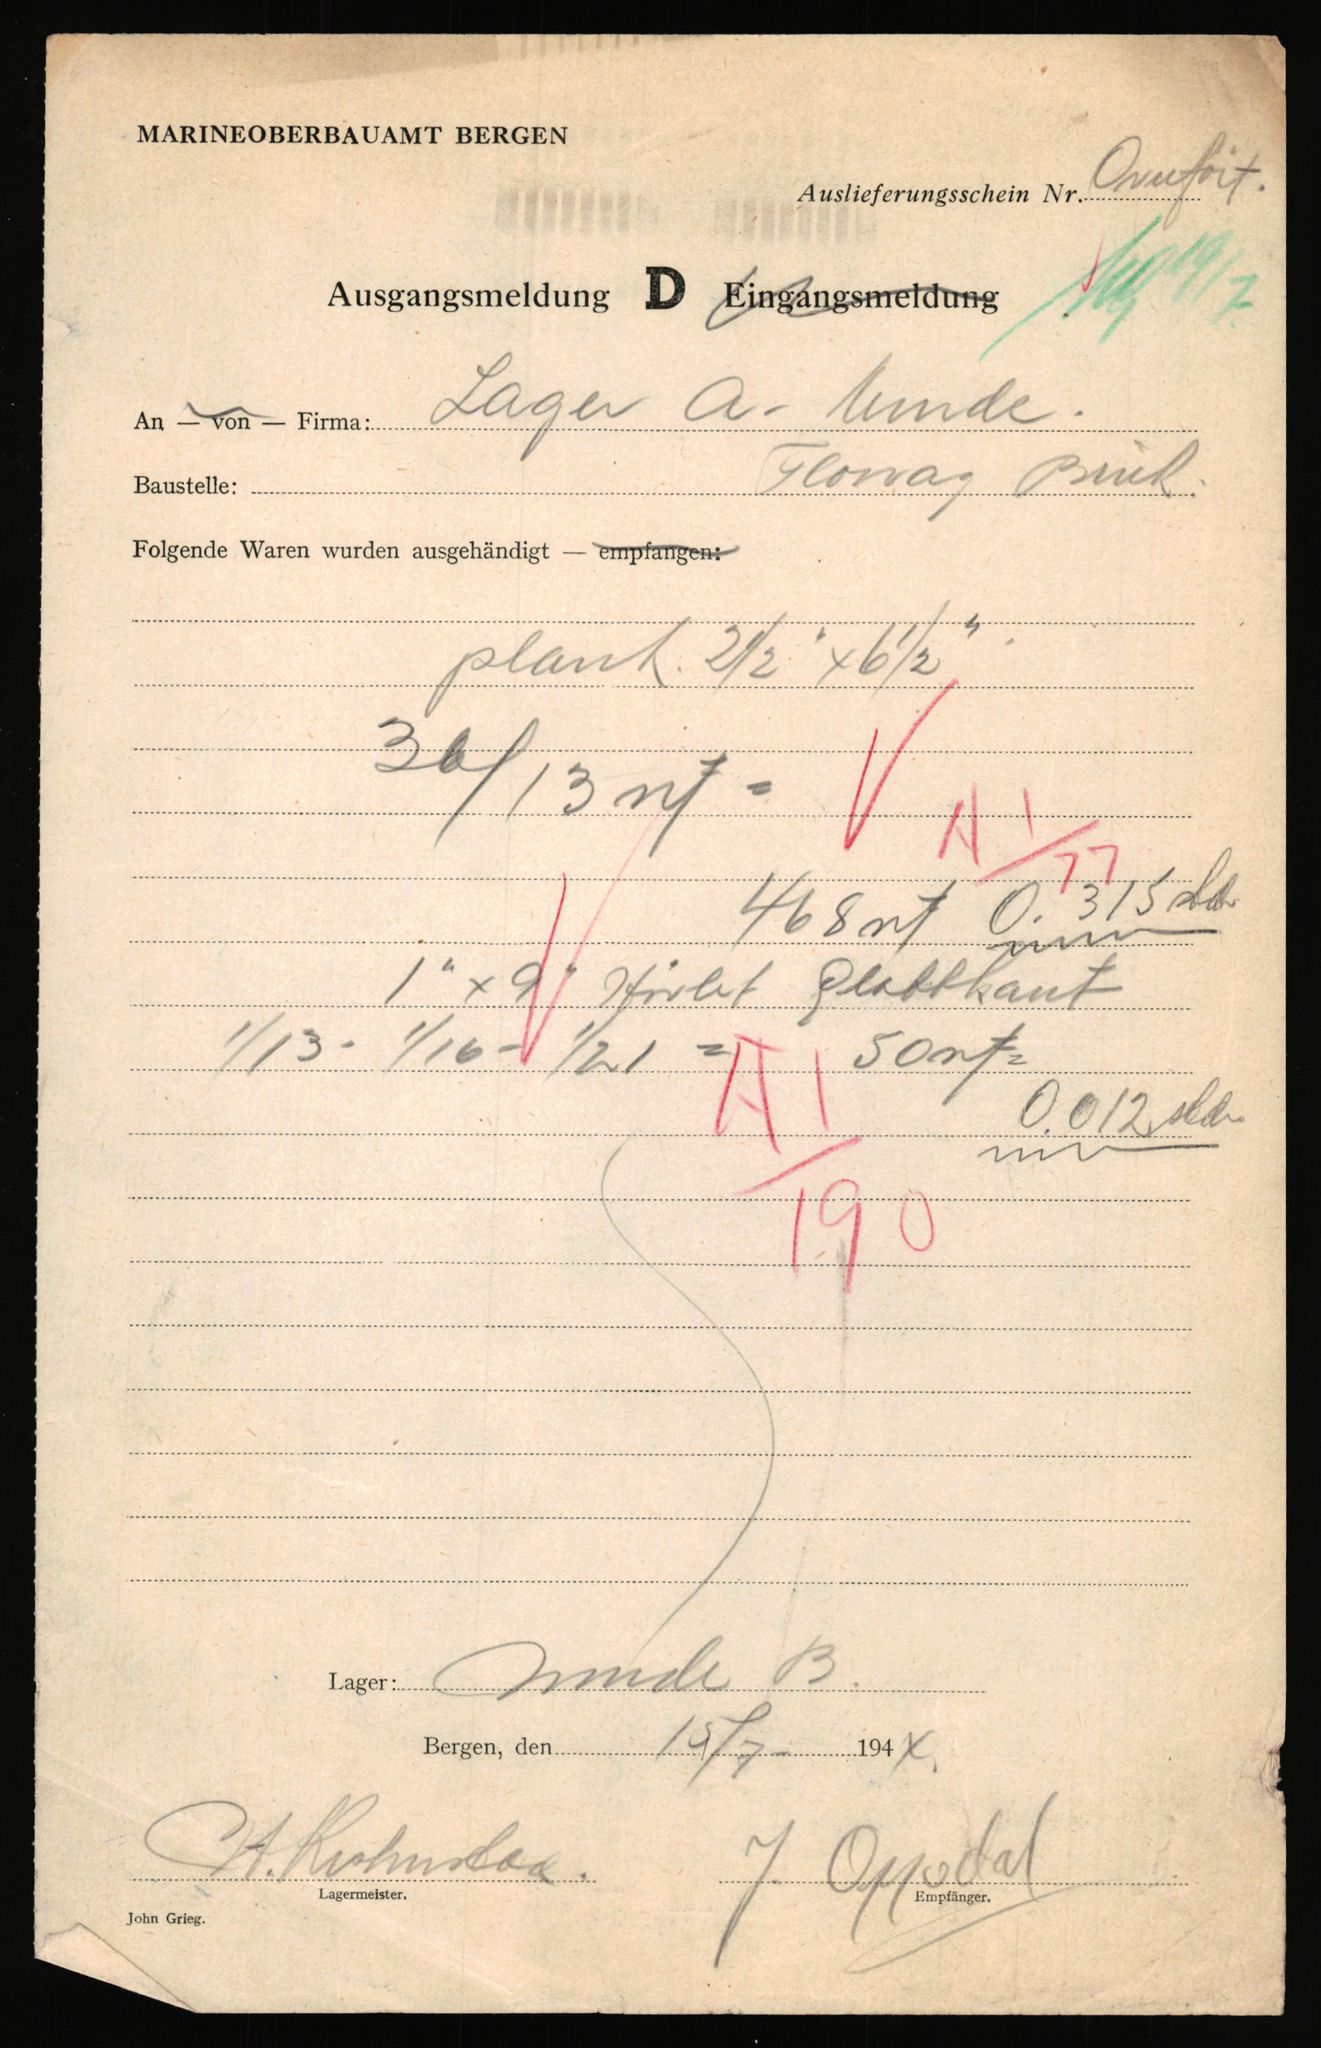 MARINEOBERBAUAMT BERGEN
Auslieferungsschein Nr.
Ausgangsmeldung D Eingangsmeldung
19/7
An — von — Firma: Lager A- Minde.
Baustelle: Flonvag Bruk.
Folgende Waren wurden ausgehändigt — empfangen:
plank. 2 1/2" x 6 1/2"
36/13 nf =
A 1/77
468 nf 0.315 stdr
1" x 9" Hövlet Glattkant
1/13 - 1/16 - 1/21 = 50 nf =
A 1/190
0.012 stdr
Lager: Minde B.
Bergen, den 15/7- 1944.
Lagermeister.
J. Oppedal
Empfänger.
John Grieg.